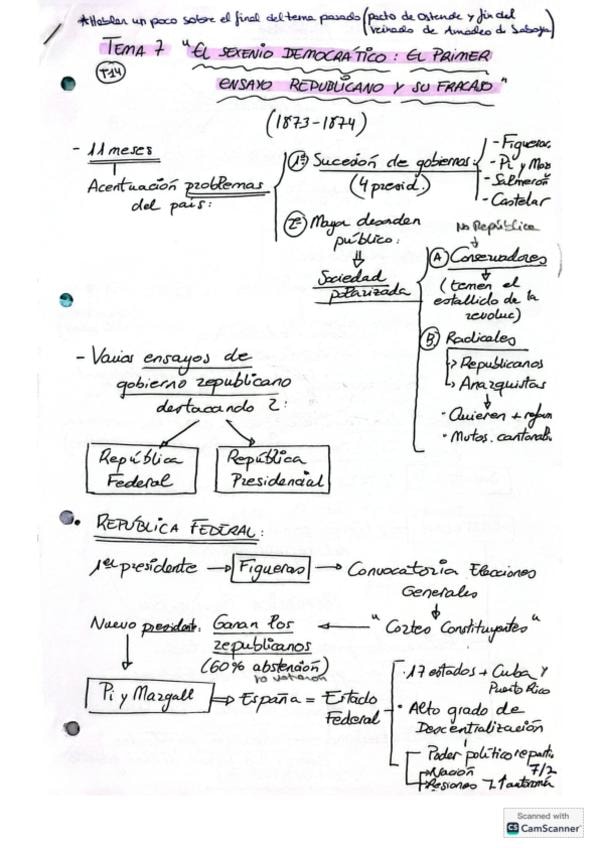 *Hablar un poco sobre el final del tema pasado (pacto de Ostende y fin del
reinado de Amadeo de Saboya)
TEMA 7 "EL SEXENIO DEMOCRÁTICO: EL PRIMER
T14
ENSAYO REPUBLICANO Y SU FRACASO"
(1873-1874)
- 11 meses
Acentuación problemas
del país:
1º Sucesión de gobiernos:
(4 presid.)
- Figueras
- Pi y Mar
- Salmerón
- Castelar
2º Mayor desorden
público:
Sociedad
polarizada
No República
A Conservadores
(temen el
estallido de la
revoluc)
B Radicales
→ Republicanos
→ Anarquistas
· Quieren + reform
· Motos. cantonal.
- Varios ensayos de
gobierno republicano
destacando 2:
República
Federal
República
Presidencial
• REPÚBLICA FEDERAL:
1er presidente → Figueras → Convocatoria Elecciones
Generales
"Cortes Constituyentes"
Ganan los
republicanos
(60% abstención)
no votaron
Nuevo president.
Pi y Margall ⇒ España = Estado
Federal
· 17 estados + Cuba y
Puerto Rico
· Alto grado de
Descentralización
Poder político repart.
Nación
Regiones